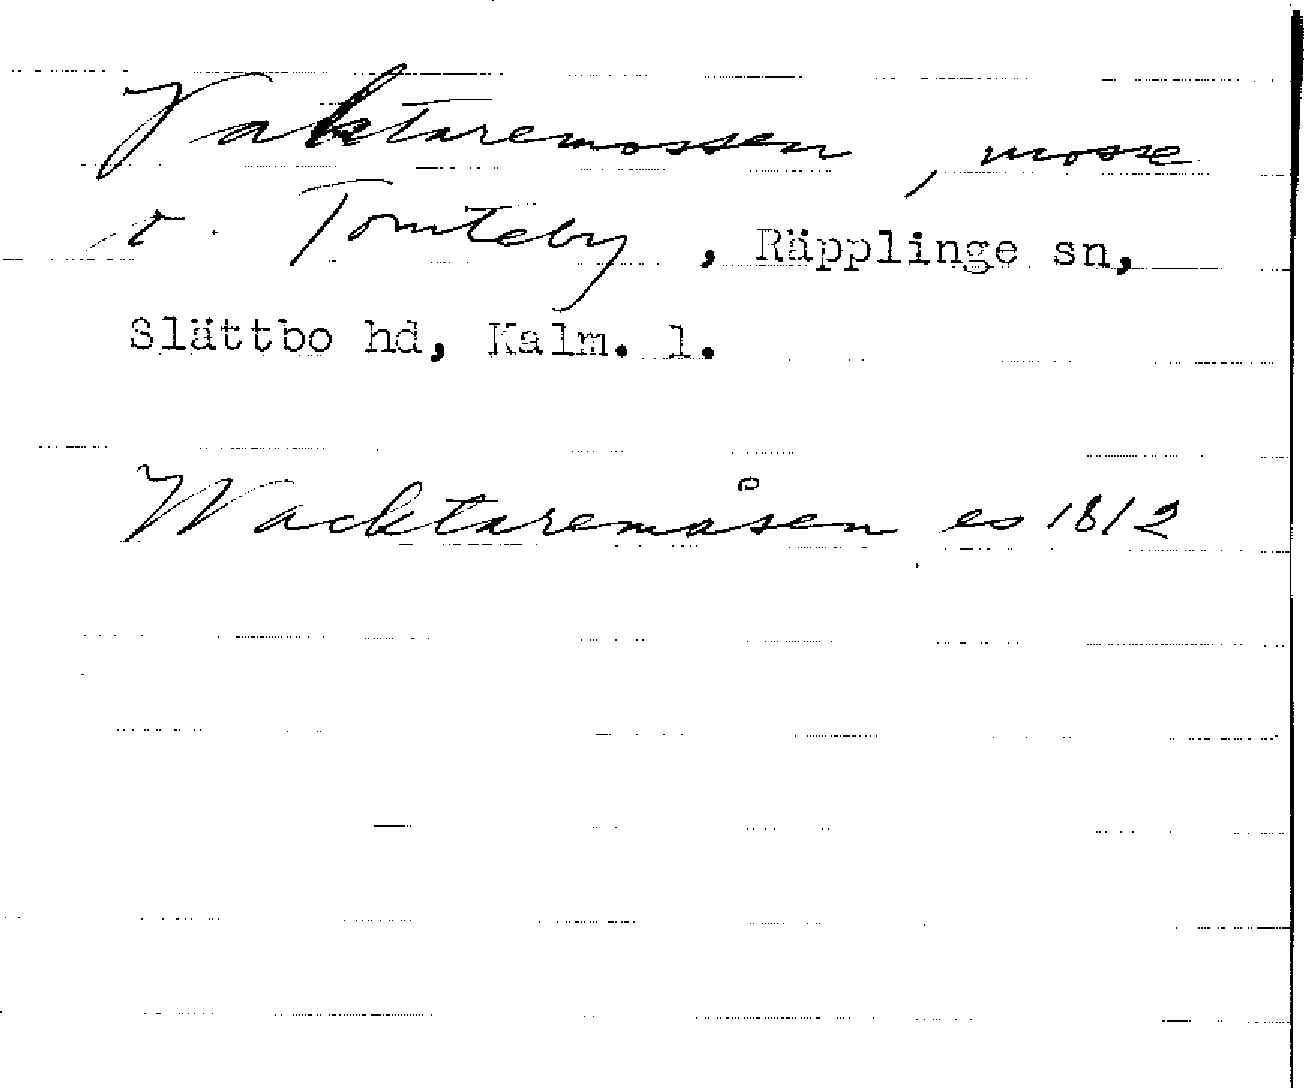 Vaktaremossen, mosse
v. Tomteby, Räpplinge sn,
Slättbo hd, Kalm. l.
Wacktaremåsen es 1812